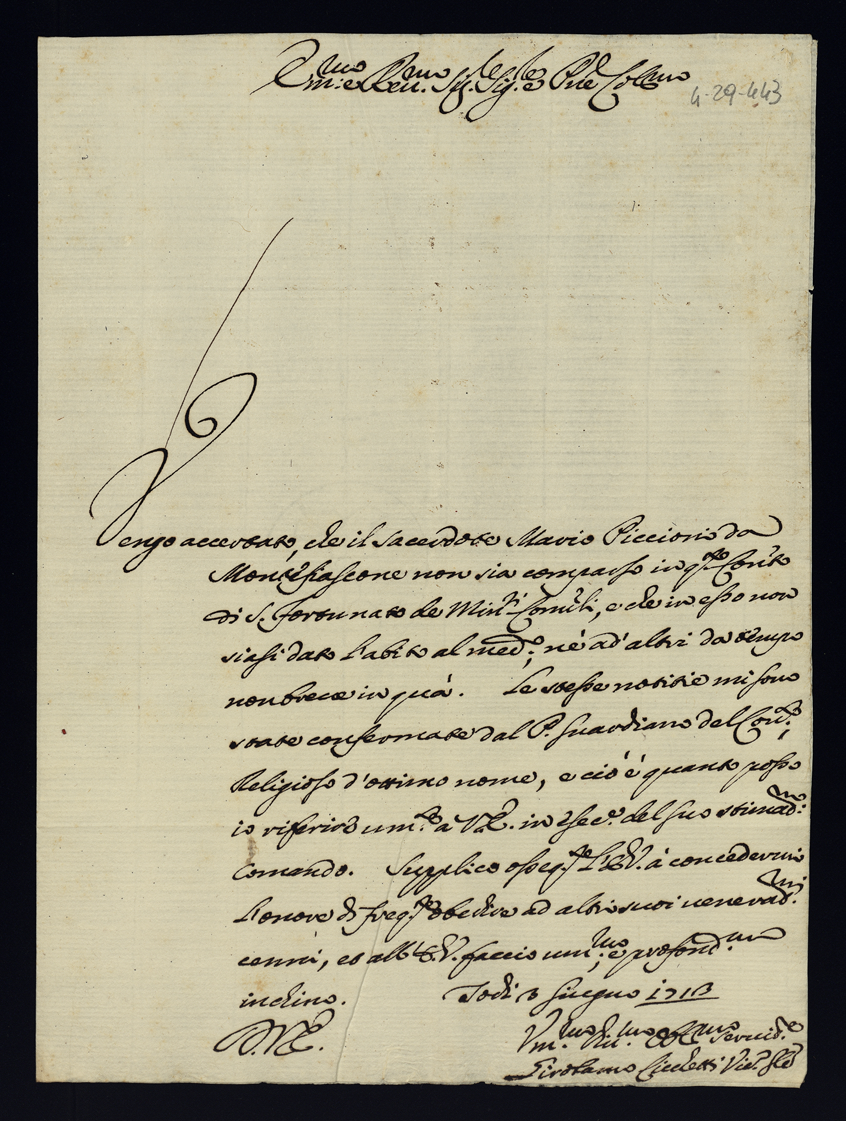 Em.mo e Rev.mo Sig.re Sig.re e P.rne Col.mo
4-29-443
Vengo accertato, che il Sacerdote Mario Piccioni da
Montefiascone non sia comparso in q.sto Con.to
di S. Fortunato de Min.ri Con.li, e che in esso non
siasi dato l'abito al med.o, nè ad' altri da tempo
non breve in quà. Le stesse notitie mi sono
state confermate dal P. Guardiano del Con.to,
Religioso d'ottimo nome, e ciò è quanto posso
io riferire um.te a V.E. in esec.e del suo stimad.mo
Comando. Supplico osseq.te l'E.V. à concedermi
l'onore di freq.te obedire ad altri suoi venerad.mi
cenni, et all'E.V. faccio um.mo, e profond.mo
inchino. Todi 3 Giugno 1713
D.V.E.
Um.mo Div.mo Obl.mo Servid.e
Girolamo Cicchetti Vic.o Gle